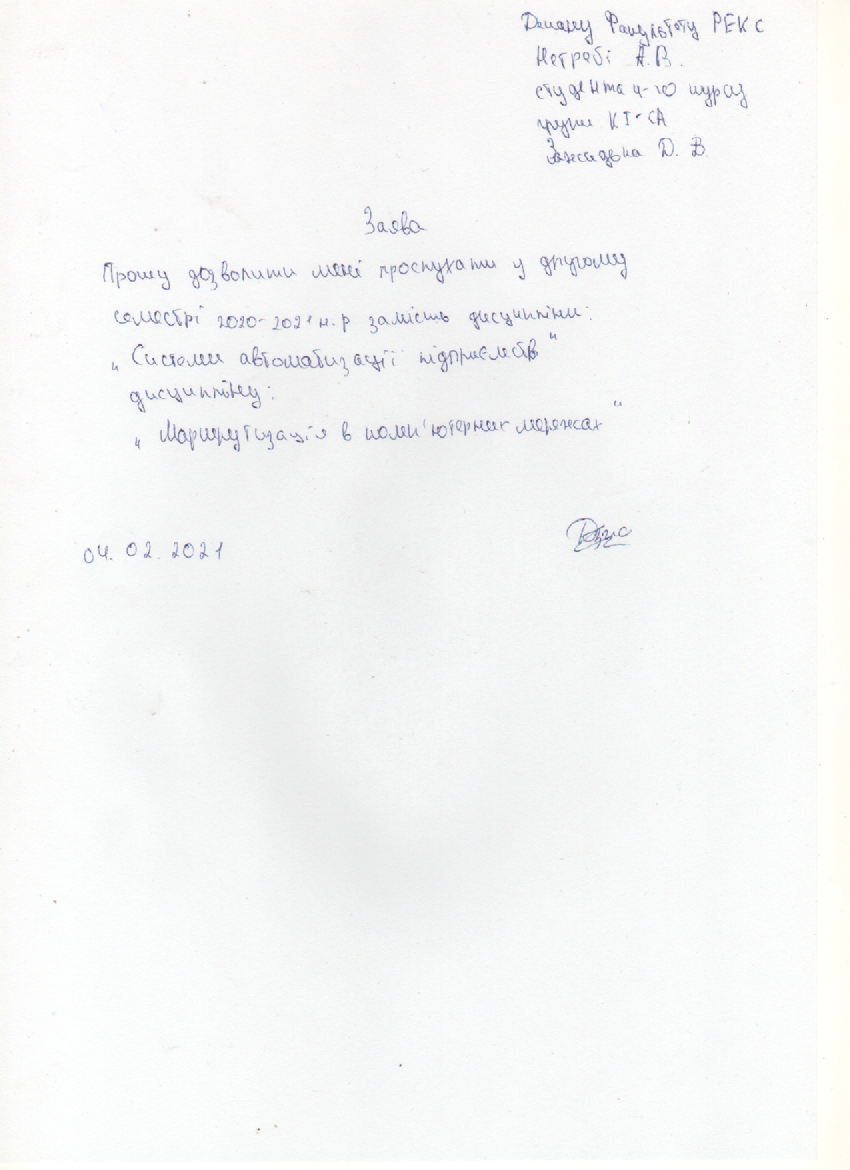 Декану Факультету РЕКС
Негребі А.В.
студента 4-го курсу
групи КІ-СА
Д. В.
Заява
Прошу дозволити мені прослухати у другому
семестрі 2020-2021 н.р замість дисципліни:
„Системи автоматизації підприємств"
дисципліну:
„Маршрутизація в комп'ютерних мережах"
04. 02. 2021